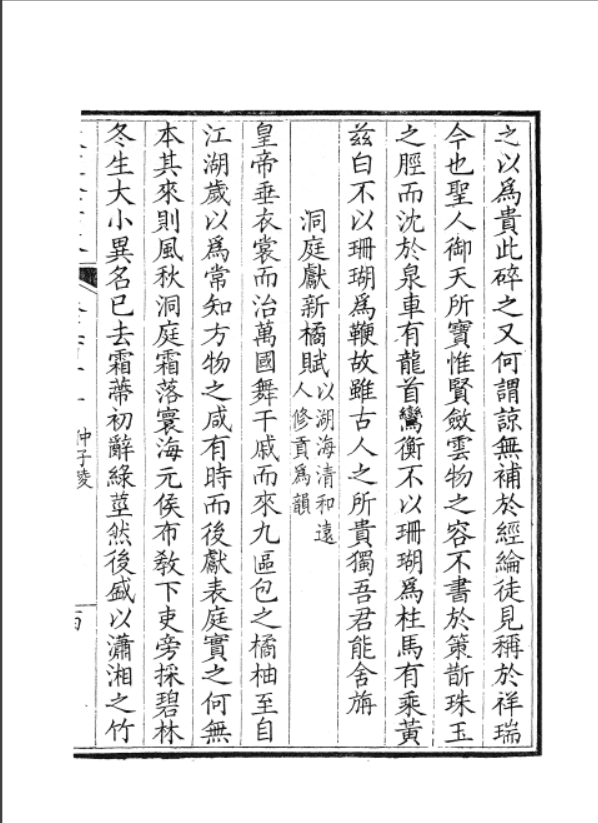 之以為貴此碎之又何謂諒無補於經綸徒見稱於祥瑞
今也聖人御天所寶惟賢斂雲物之容不書於策斮珠玉
之脛而沈於泉車有龍首鸞衡不以珊瑚為柱馬有乘黃
茲白不以珊瑚為鞭故雖古人之所貴獨吾君能舍旃
洞庭獻新橘賦以湖海清和遠
人修貢為韻
皇帝垂衣裳而治萬國舞干戚而來九區包之橘柚至自
江湖歲以為常知方物之咸有時而後獻表庭實之何無
本其來則風秋洞庭霜落寰海元侯布教下吏旁採碧林
冬生大小異名已去霜蔕初辭綠莖然後盛以瀟湘之竹
仲子陵